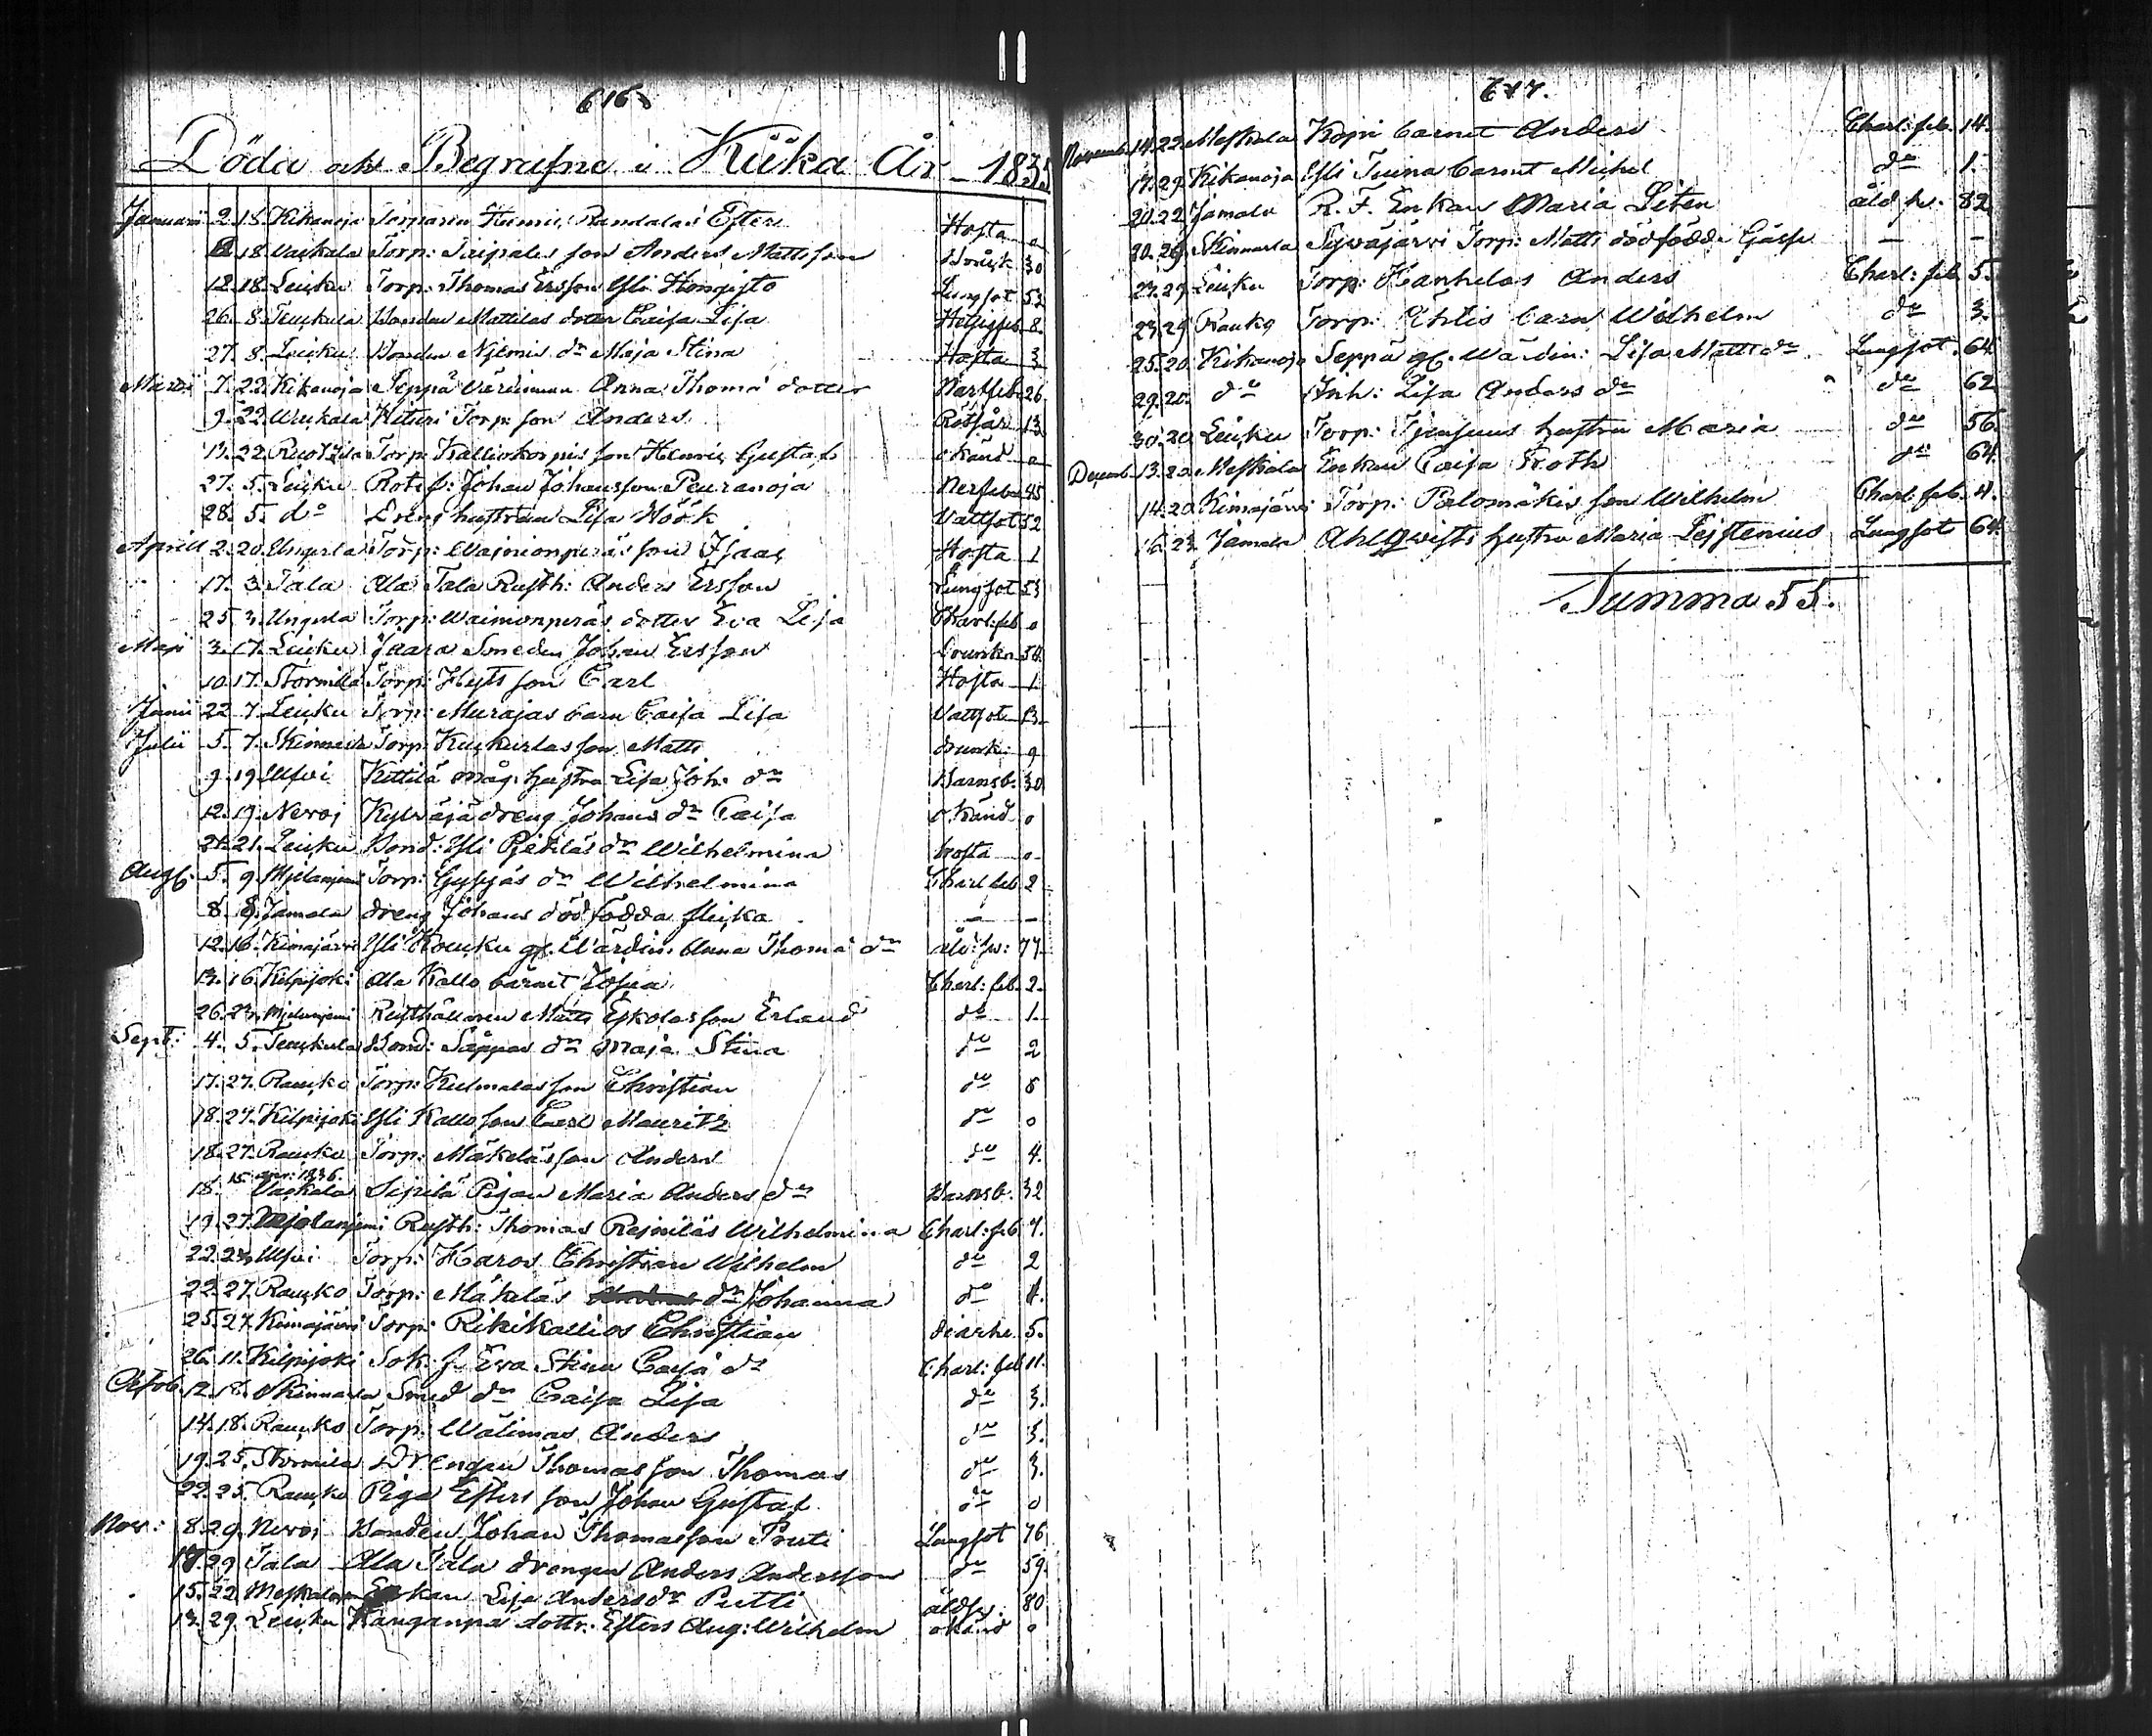 616
Döda och Begrafne i Kiika År 1835
Januari 2. 18. Kikanoja Torparen Henric Randalas Ester Hosta 0
18. Vaskala Torp: Taipales son Anders Mattsson Bråck 30
12. 18. Leuku Torp: Thomas Ersson Yli Hongisto Lungsot 53
26. 8. Teuckula Bonden Mattilas dotter Caisa Lisa Hetsigfeb. 8.
27. 8. Leuku Bonden Njemis dr Maja Stina Hosta 3
Martii 7. 22. Kikanoja Seppä värdinnan Anna Thomä dotter Närffeb. 26.
9. 22. Torp: son Anders Rötsår 13
13. 22. Torp: Kalliokorpis son Henric Gustaf okänd 0
27. 5. Leuku Rotef: Johan Johansson Peuranoja Nerffeber 45
28. 5. do Dreng hustrun Lisa Höök Vattsot 52
Aprill 2. 20. Ungerla Torp: Wainionperäs son Isaac Hosta 1
17. 3. Tala Ala Tala Rusth: Anders Ersson Lungsot 53
25. 3. Ungerla Torp: Wainionperäs dotter Eva Lisa Charl: feb 0
Maji 3. 17. Leuku Jaara Smeden Johan Ersson Drunkn 54.
10. 17. Stormilla Torp: Hejts son Carl Hosta 1
Junii 22. 7. Leuku Torp: Murajas barn Caisa Lisa Vattsot 13.
Julii 5. 7. Skinnarla Torp: Kuckurlas son Matts drunk: 9
9. 19. Ufvi Kittilä måg. hustru Lisa Joh. dr Barnsb. 30
12. 19. Nevoj Kylväjä dreng Johans dr Caisa okänd 0
21. 21. Leuku Bond: Yli Pjetiläs dr Wilhelmina hosta 0
Aug. 5. 9. Mjelanjemi Torp: dr Wilhelmina Charl feb. 2
8. 9. Jamala dreng Johans dödfödda flicka — —
12. 16. Kimajärvi Yli Kouku gl. Värdin: Anna Thomä dr åld: sv: 77
13. 16. Kilpijoki Ala Kallo barnet Josua Charl: feb. 2.
26. 27. Mjelanjemi Rusthållaren Matts Eskolas son Erland do 1.
Sept: 4. 5. Teuckula Bond: Säppas dr Maja Stina do 2
17. 27. Raucko Torp: Kulmalas son Christian do 8
18. 27. Kilpijoki Yli Kallo son Carl Mauritz do 0
18. 27. Raucko Torp: Mäkeläs son Anders do 4.
18. 15 1836. Vaskala Sipilä Pigan Maria Anders dr Barnsb. 32
19. 27. Mjelanjemi Rusth: Thomas Rejniläs Wilhelmina Charl: feb 7.
22. 27. Ufvi Torp: Karos Christian Wilhelm do 2
22. 27. Raucko Torp: Mäkeläs dr Johanna do 4.
25. 27. Kimajärvi Torp: Rikikallios Christian diarhe 5.
26. 11. Kilpijoki Sok: f. Eva Stina Caisa dr Charl: feb 11.
Octob. 12. 18. Skinnarla Smed dr Caisa Lisa do 3.
14. 18. Raucko Torp: Wälimas Anders do 3.
19. 25. Stormila Drengen Thomas son Thomas do 3.
22. 25. Raucko Piga Esters son Johan Gustaf do 0
Nov: 8. 29. Nevoj Bonden Johan Thomasson Prusti Lungsot 76
18. 29. Tala Ala Tala drengen Anders Andersson do 59.
15. 22. Meskala Enkan Lisa Anders dr Putti åldsv: 80
13. 29. Leuku Kauganpä dottr. Esters Aug: Wilhelm okänd 0
617.
Novemb. 14. 22. Meskala Kopri barnet Anders Charl: feb. 14.
17. 29. Kikanoja Yli Tuina barnet Michel do 1.
20. 22. Jamala R. F. Enkan Maria Liten åld sv. 82
20. 29. Skinnarla Syväjärvi Torp: Matts dödfödde Gåsse — —
23. 29. Leuku Torp: Kanhelas Anders Charl: feb 5.
23. 29. Raucko Torp: Ahlis barn Wilhelm do 3.
25. 20. Kikanoja Seppä gl. Wärdin: Lisa Matts dr Lungsot 64
29. 20. do Inh: Lisa Anders dr do 62
30. 20. Leuku Torp: hustru Maria do 56.
Decemb. 13. 20. Meskala Enkan Caisa Kroth do 64.
14. 20. Kimajärvi Torp: Palomäkis son Wilhelm Charl: feb. 4.
16. 27. Jamala Ahlqvists hustru Maria Lejstenius Lungsot 64.
Summa 55.